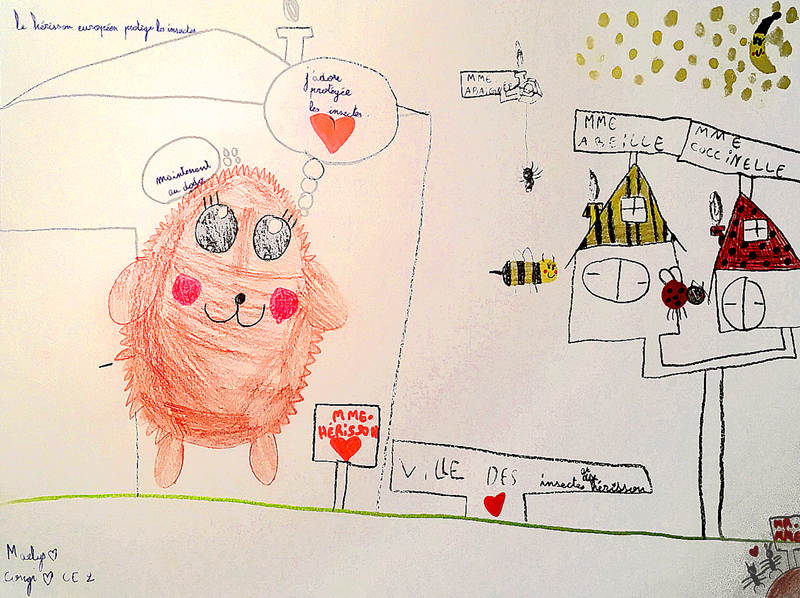 Le hérisson européen protège les insectes
J'adore
protégée
les insectes.
maintenant
au dodo
MME
ARAIGNÉE
MME
ABEILLE
MME
COCCINELLE
MME-
HÉRISSON
VILLE DES insectes et des hérisson
Maelys
CE 2